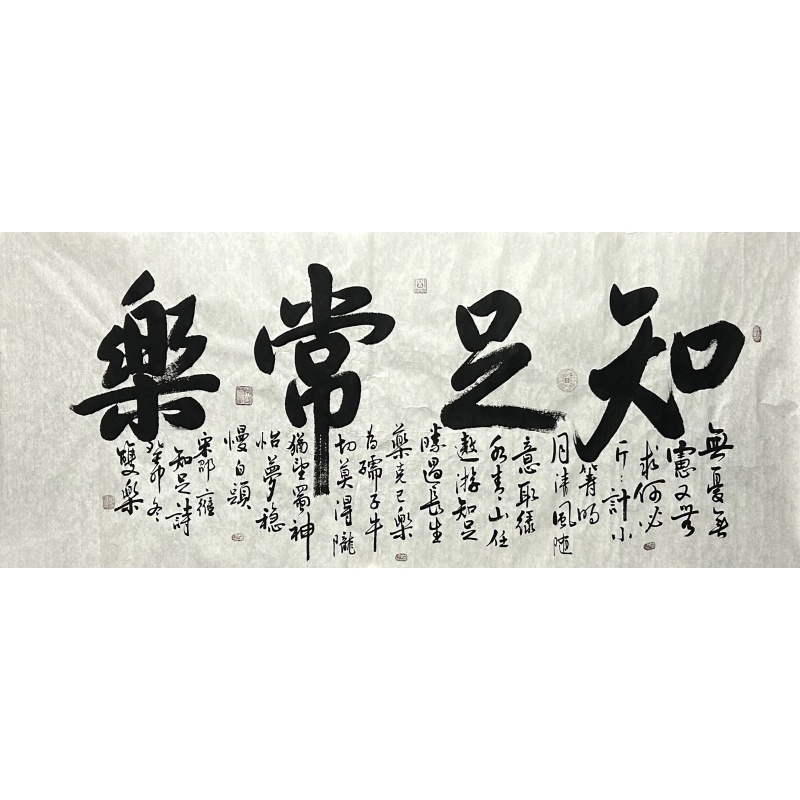 知足常樂
無憂無
慮又無
求何必
斤〻計小
籌明
月清風隨
意取綠
水青山任
遨游知足
勝過長生
藥克己樂
為孺子牛
切莫得隴
猶望蜀神
怡夢穩
慢白頭
宋邵雍
知足詩
癸卯冬
雙樂